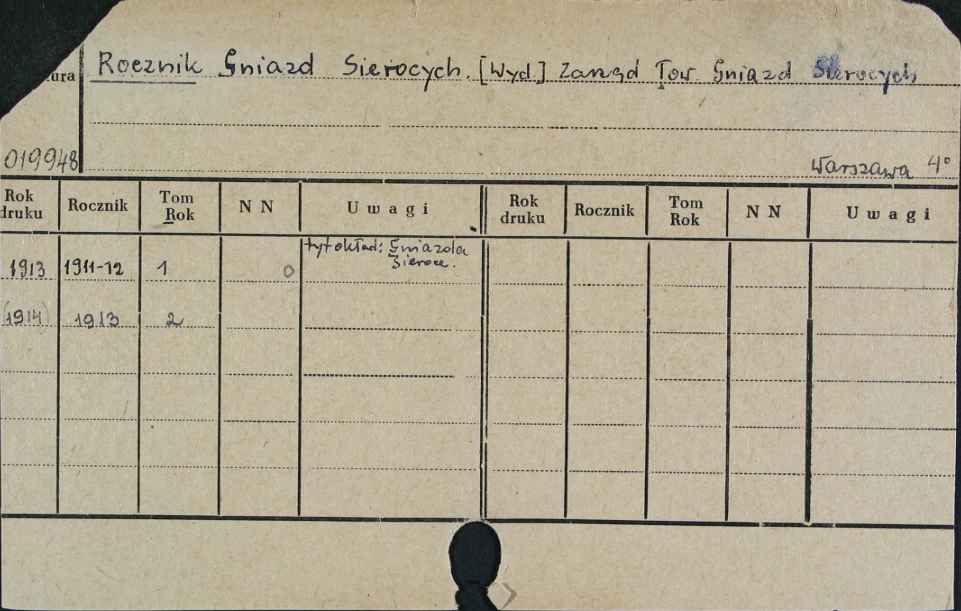 Rocznik Gniazd Sierocych. [Wyd.] Zarząd Tow. Gniazd Sierocych
ura
019948
Warszawa 4°
Rok druku Rocznik Tom Rok N N Uwagi Rok druku Rocznik Tom Rok N N Uwagi
tyt okład: Gniazda
Sieroce.
1913 1911-12 1 0
(1914) 1913 2